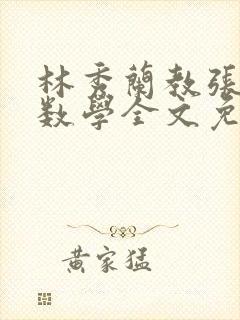 林秀蘭教張
数學全文免
黄家猛